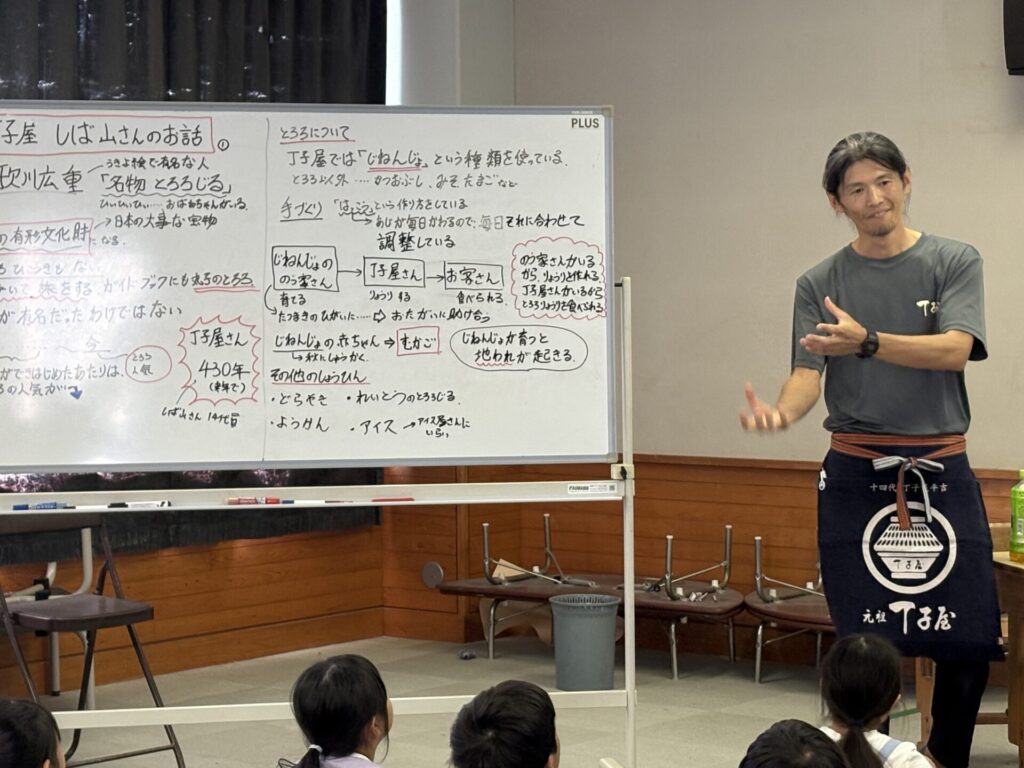 丁子屋 しば山さんのお話 ①
歌川広重
うきよ絵で有名な人
「名物 とろろじる」
おばあちゃんがいる
日本の大事な宝物
の有形文化財になる。
ガイドブックにものるとろろ
が有名だったわけではない
今
ができはじめたあたりは、
とろろ人気
の人気が
丁子屋さん
430年
(来年で)
しば山さん 14代目
PLUS
とろろについて
丁子屋では「じねんじょ」という種類を使っている。
とろろ以外…かつおぶし、みそ、たまごなど
手づくり
という作り方をしている
あじが毎日かわるので、毎日それに合わせて
調整している
じねんじょの
のう家さん
丁子屋さん
お客さん
育てる
りょうりする
食べられる
たつまきのひがいた……⇨おたがいに助け合う
のう家さんがいる
から りょうりを作れる
丁子屋さんがいるから
とろろりょうりを食べられる
じねんじょの赤ちゃん⇒むかご
秋にしゅうかく。
じねんじょが育つと
地われが起きる。
その他のしょうひん
・どらやき ・れいとうのとろろじる。
・ようかん ・アイス
アイス屋さんに
いらい
丁子屋
十四代 丁子屋平吉
丁子屋
元祖 丁子屋